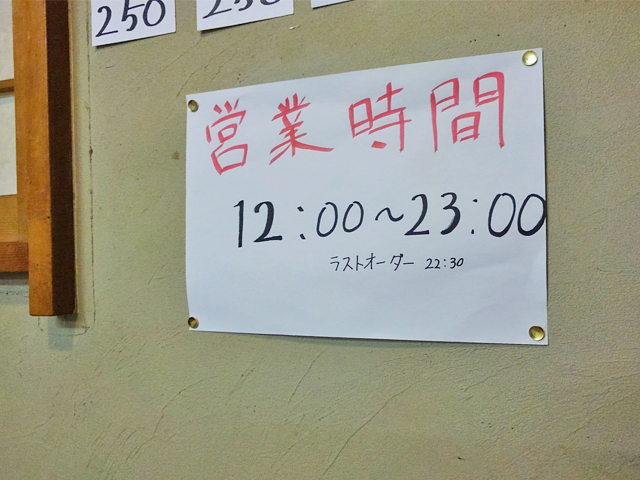 250
250
営業時間
12:00~23:00
ラストオーダー 22:30